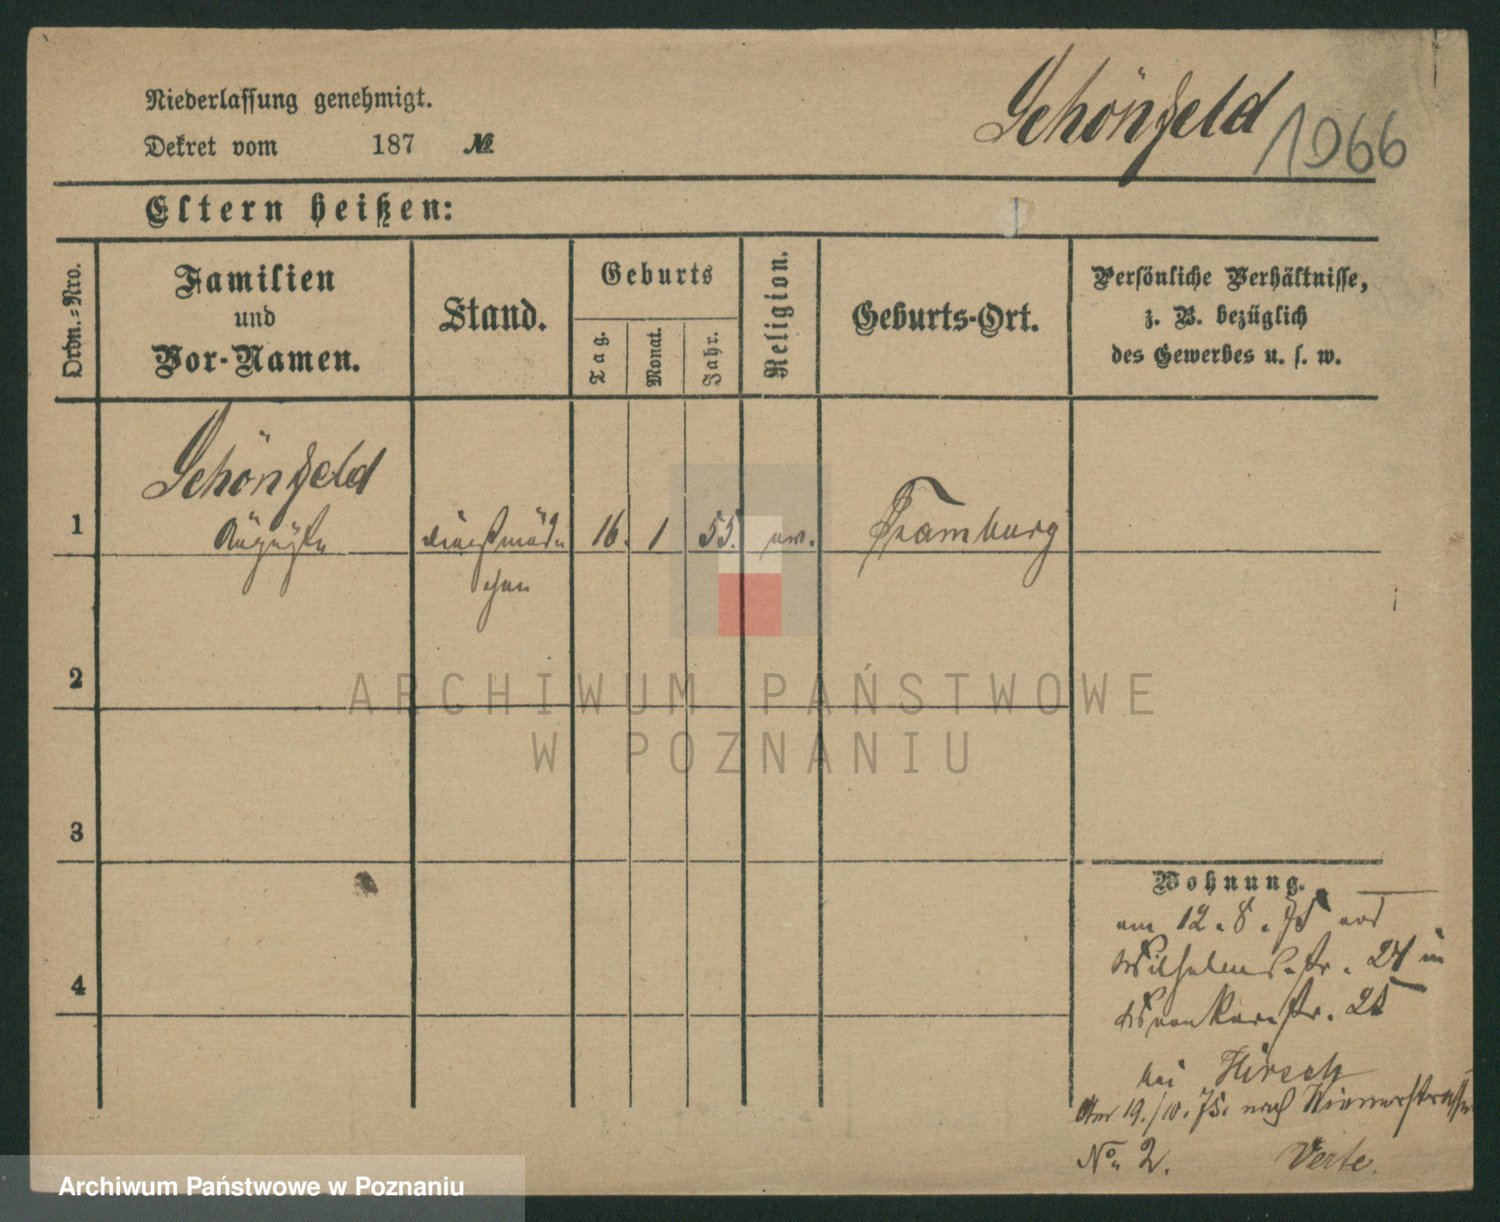 Schönfeld 1966
Niederlassung genehmigt.
Dekret vom 187 №
Eltern heißen:
Ordn.-Nro.
Familien
und
Vor-Namen.
Stand.
Geburts
Tag.
Monat.
Jahr.
Religion.
Geburts-Ort.
Persönliche Verhältnisse,
z. B. bezüglich
des Gewerbes u. s. w.
Schönfeld
1 Auguste Dienstmäd- 16. 1 55. ev. Dramburg
chen
2
3
4
Wohnung.
am 12. 8. 75 aus
Wilhelmsstr. 24 in
str. 25
bei Hirsch
Am 19./10. 75. nach
No 2. Verte.
ARCHIWUM PAŃSTWOWE
W POZNANIU
Archiwum Państwowe w Poznaniu